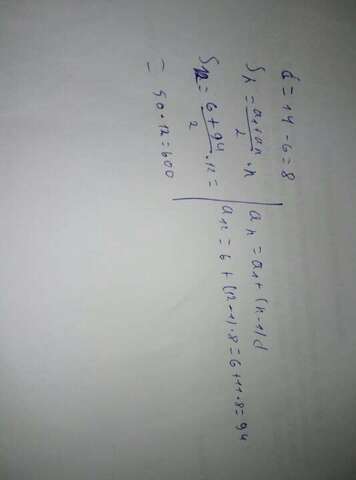 d = 14 - 6 = 8
Sₙ = (a₁ + aₙ)/2 · n
S₁₂ = (6 + 94)/2 · 12 =
= 50 · 12 = 600
aₙ = a₁ + (n - 1)d
a₁₂ = 6 + (12 - 1) · 8 = 6 + 11 · 8 = 94